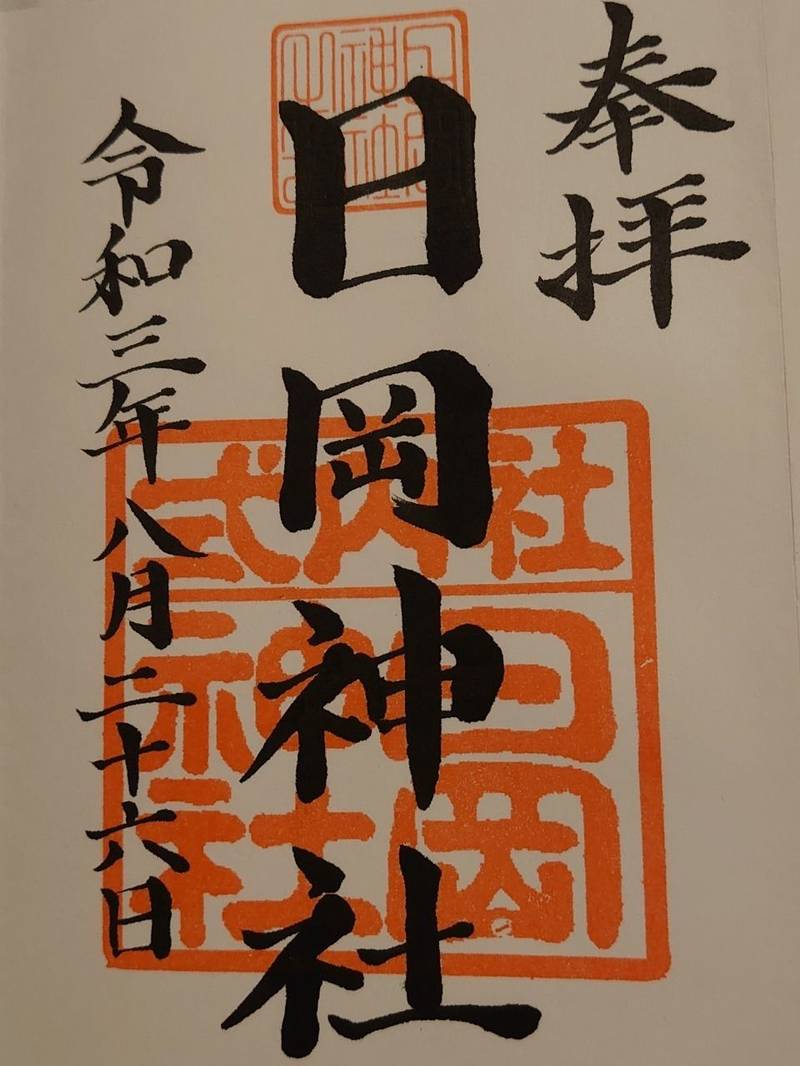 奉拝
日岡神社
令和三年八月二十六日
式内社
日岡
神社